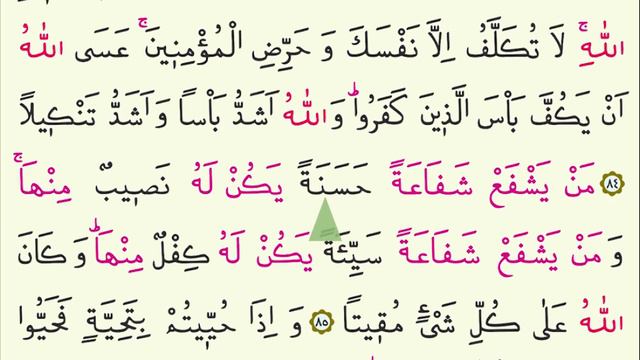 اللّٰهِۚ لَا تُكَلَّفُ اِلَّا نَفْسَكَ وَ حَرِّضِ الْمُؤْمِنٖينَۚ عَسَى اللّٰهُ
اَنْ يَكُفَّ بَاْسَ الَّذٖينَ كَفَرُواؕ وَاللّٰهُ اَشَدُّ بَاْساً وَ اَشَدُّ تَنْكٖيلاً
﴿٨٤﴾ مَنْ يَشْفَعْ شَفَاعَةً حَسَنَةً يَكُنْ لَهُ نَصٖيبٌ مِنْهَاۚ
وَ مَنْ يَشْفَعْ شَفَاعَةً سَيِّئَةً يَكُنْ لَهُ كِفْلٌ مِنْهَاؕ وَ كَانَ
اللّٰهُ عَلٰى كُلِّ شَیْءٍ مُقٖيتاً ﴿٨٥﴾ وَ اِذَا حُيّٖيتُمْ بِتَحِيَّةٍ فَحَيُّوا